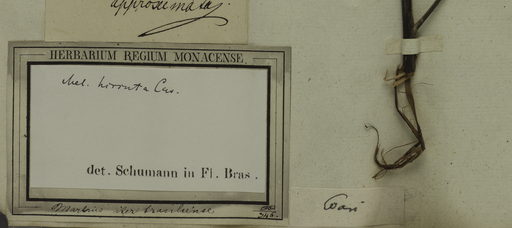 approximata,
HERBARIUM REGIUM MONACENSE.
Mel. hirsuta Cav.
det. Schumann in Fl. Bras.
Martius iter brasiliense
Coari